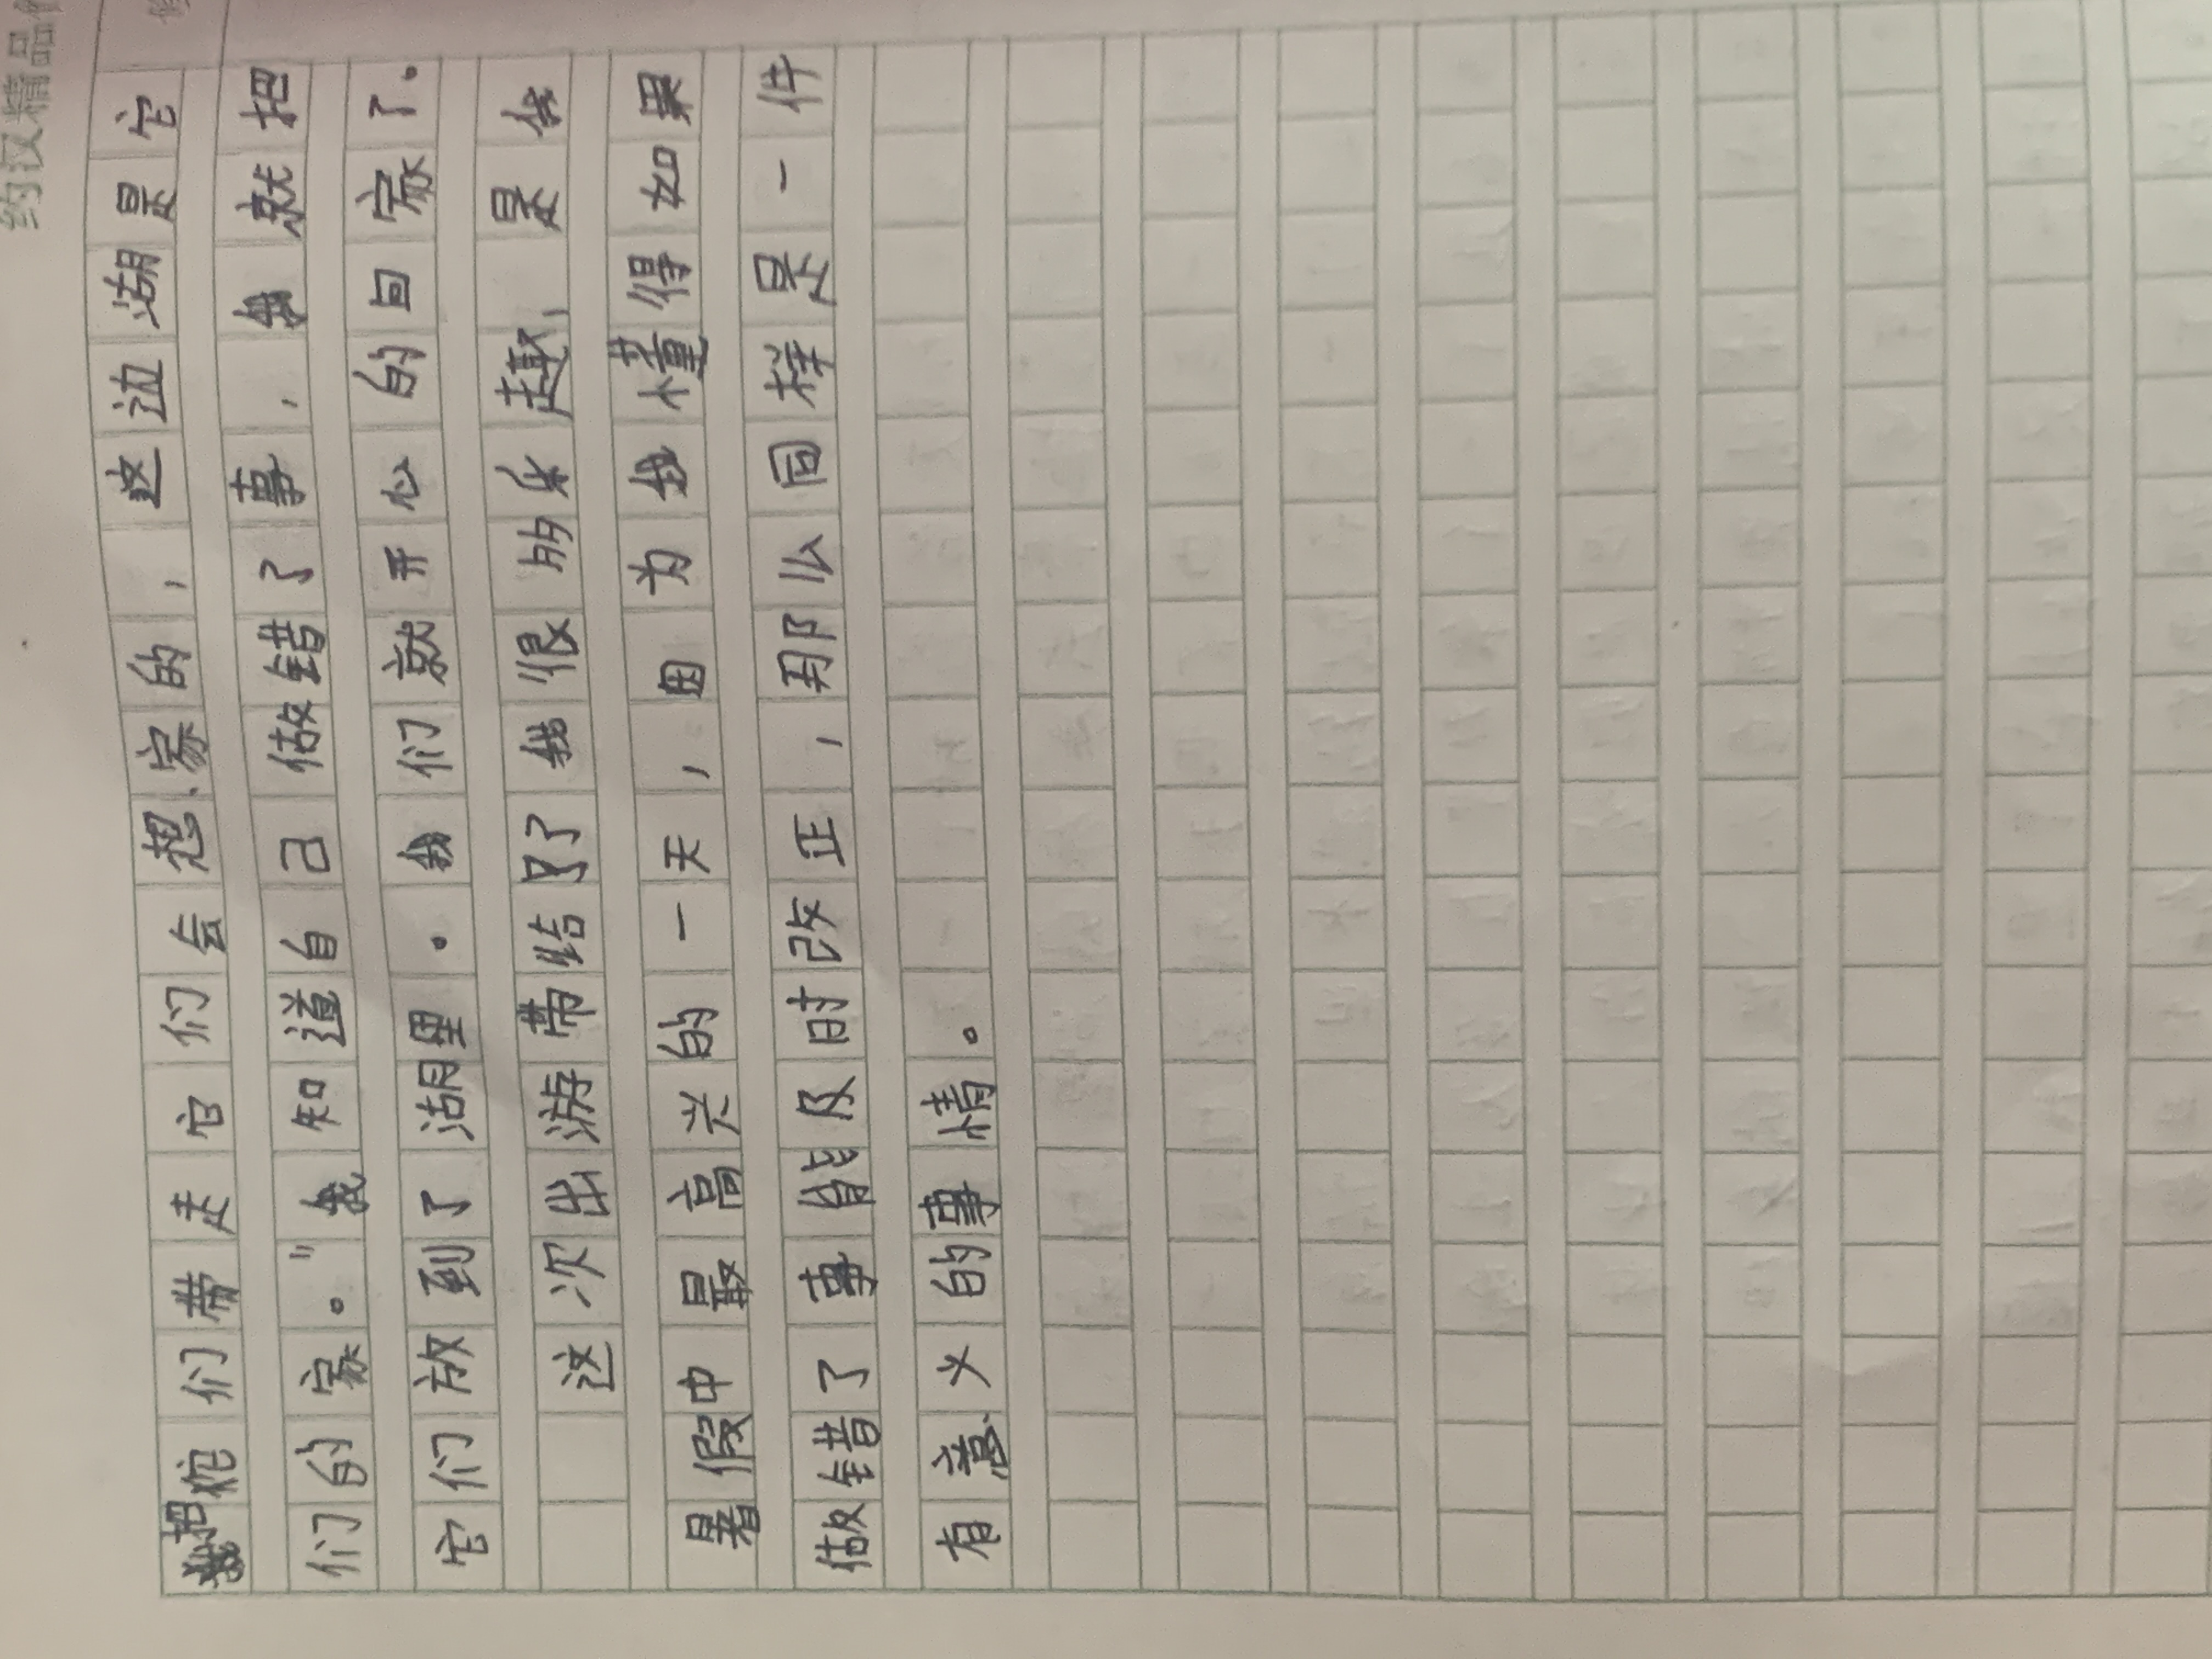 把们带走它们会想家的，这边湖是它
们的家。”我知道自己做错了事，我就把
它们放到了湖里。我们就开心的回家了。
这次出游带结了我很多乐趣，是我
暑假中最高兴的一天，因为我懂得如果
做错了事能及时改正，那么同样是一件
有意义的事情。